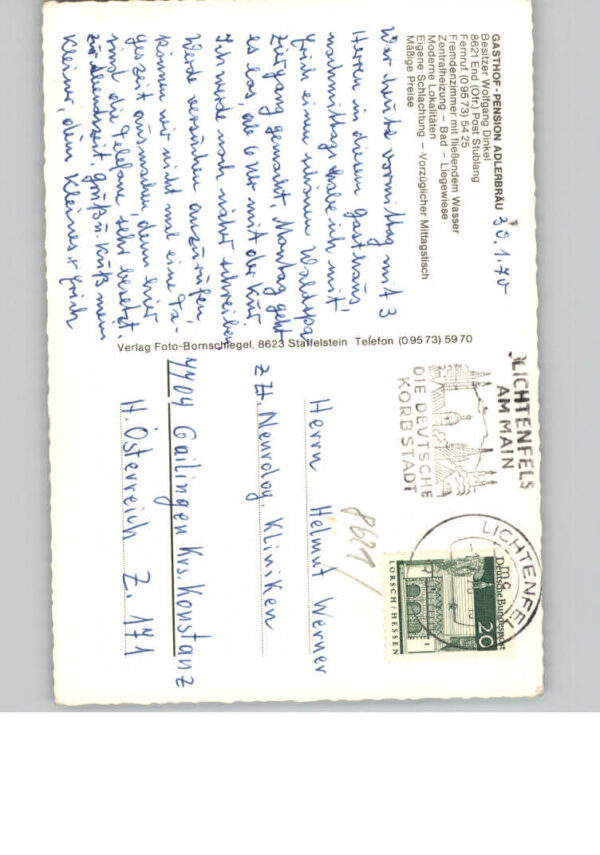 GASTHOF-PENSION ADLERBRÄU
Besitzer Wolfgang Dinkel
8621 End (Ofr.) Post Stublang
Fernruf (0 95 73) 54 25
Fremdenzimmer mit fließendem Wasser
Zentralheizung – Bad – Liegewiese
Moderne Lokalitäten
Eigene Schlachtung – Vorzüglicher Mittagstisch
Mäßige Preise
30.1.70
War heute vormittag mit 3
Herren in diesem Gasthaus,
nachmittags habe ich mit
Erich einen schönen Waldspa
ziergang gemacht, Montag geht
es los, ab 6 Uhr mit der Kur.
Ich werde noch näher schreiben
Werde versuchen anzurufen,
können wir nicht mal eine Ta-
geszeit ausmachen, denn hier
sind die Telefone sehr besetzt.
zur Abendzeit. Gruß u. Kuß mein
Kleiner, dein Kleines + Erich
Verlag Foto-Bornschlegel, 8623 Staffelstein Telefon (0 95 73) 59 70
LICHTENFELS
AM MAIN
DIE DEUTSCHE
KORBSTADT
LICHTENFEL
Deutsche Bundespost
20
LORSCH/HESSEN
8621/
Herrn Helmut Werner
z. Zt. Neurolog. Kliniken
7704 Gailingen Krs. Konstanz
H. Österreich Z. 171